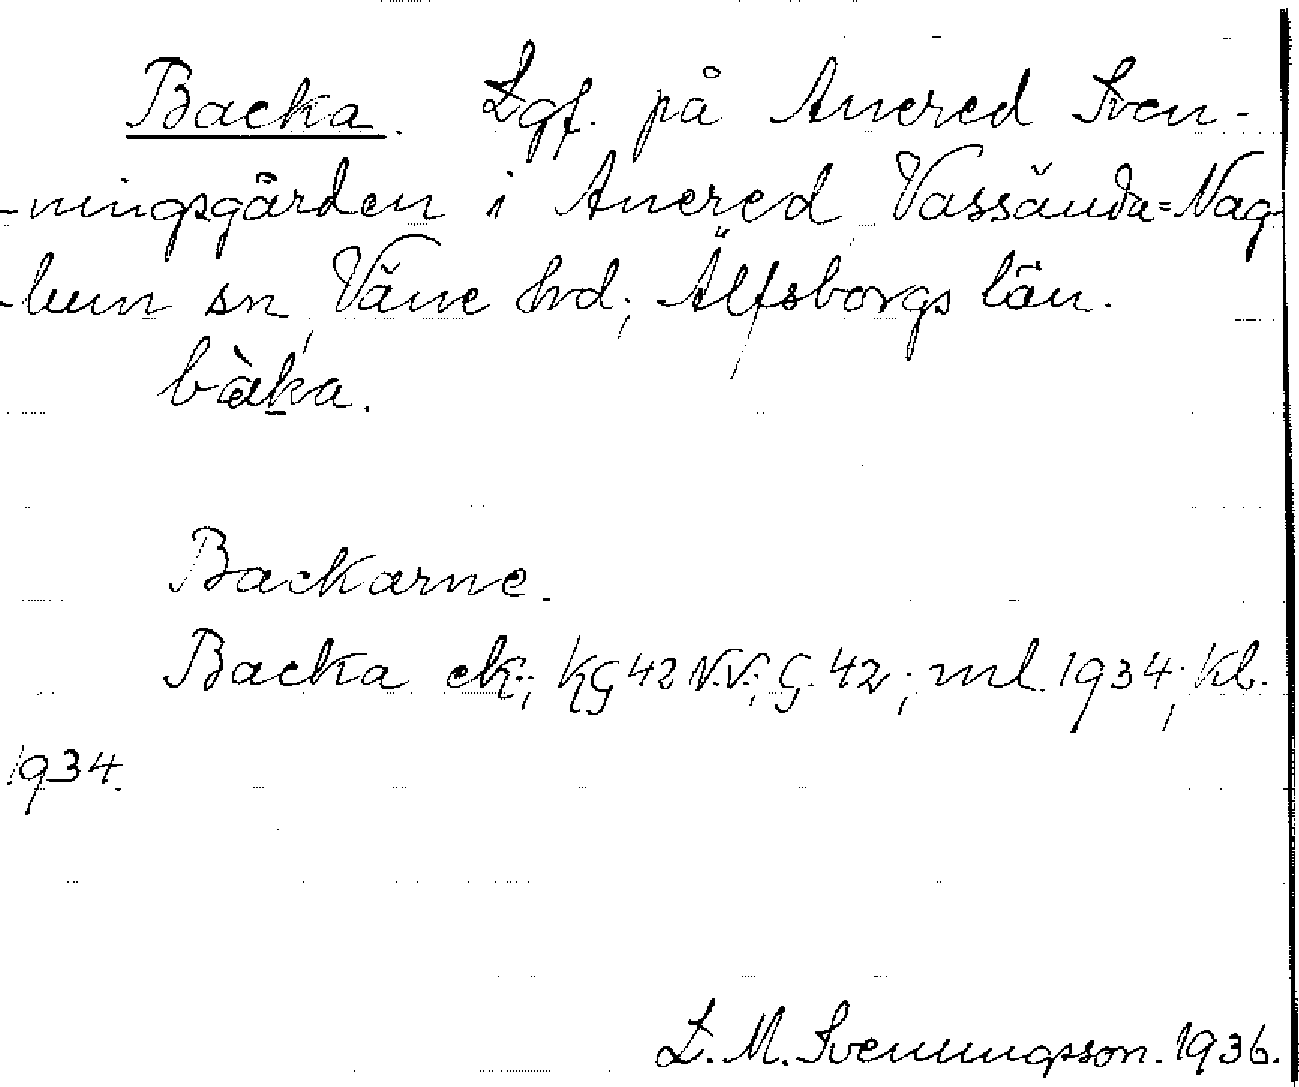 Backa. Lgf. på Anered Sven-
-ningsgården i Anered, Vassända=Nag-
-lum sn, Väne hrd; Älfsborgs län.
bàka.
Backarne.
Backa ek; KG 42 N.V.; G. 42; ml. 1934; Kb.
1934.
L. M. Svenningsson. 1936.